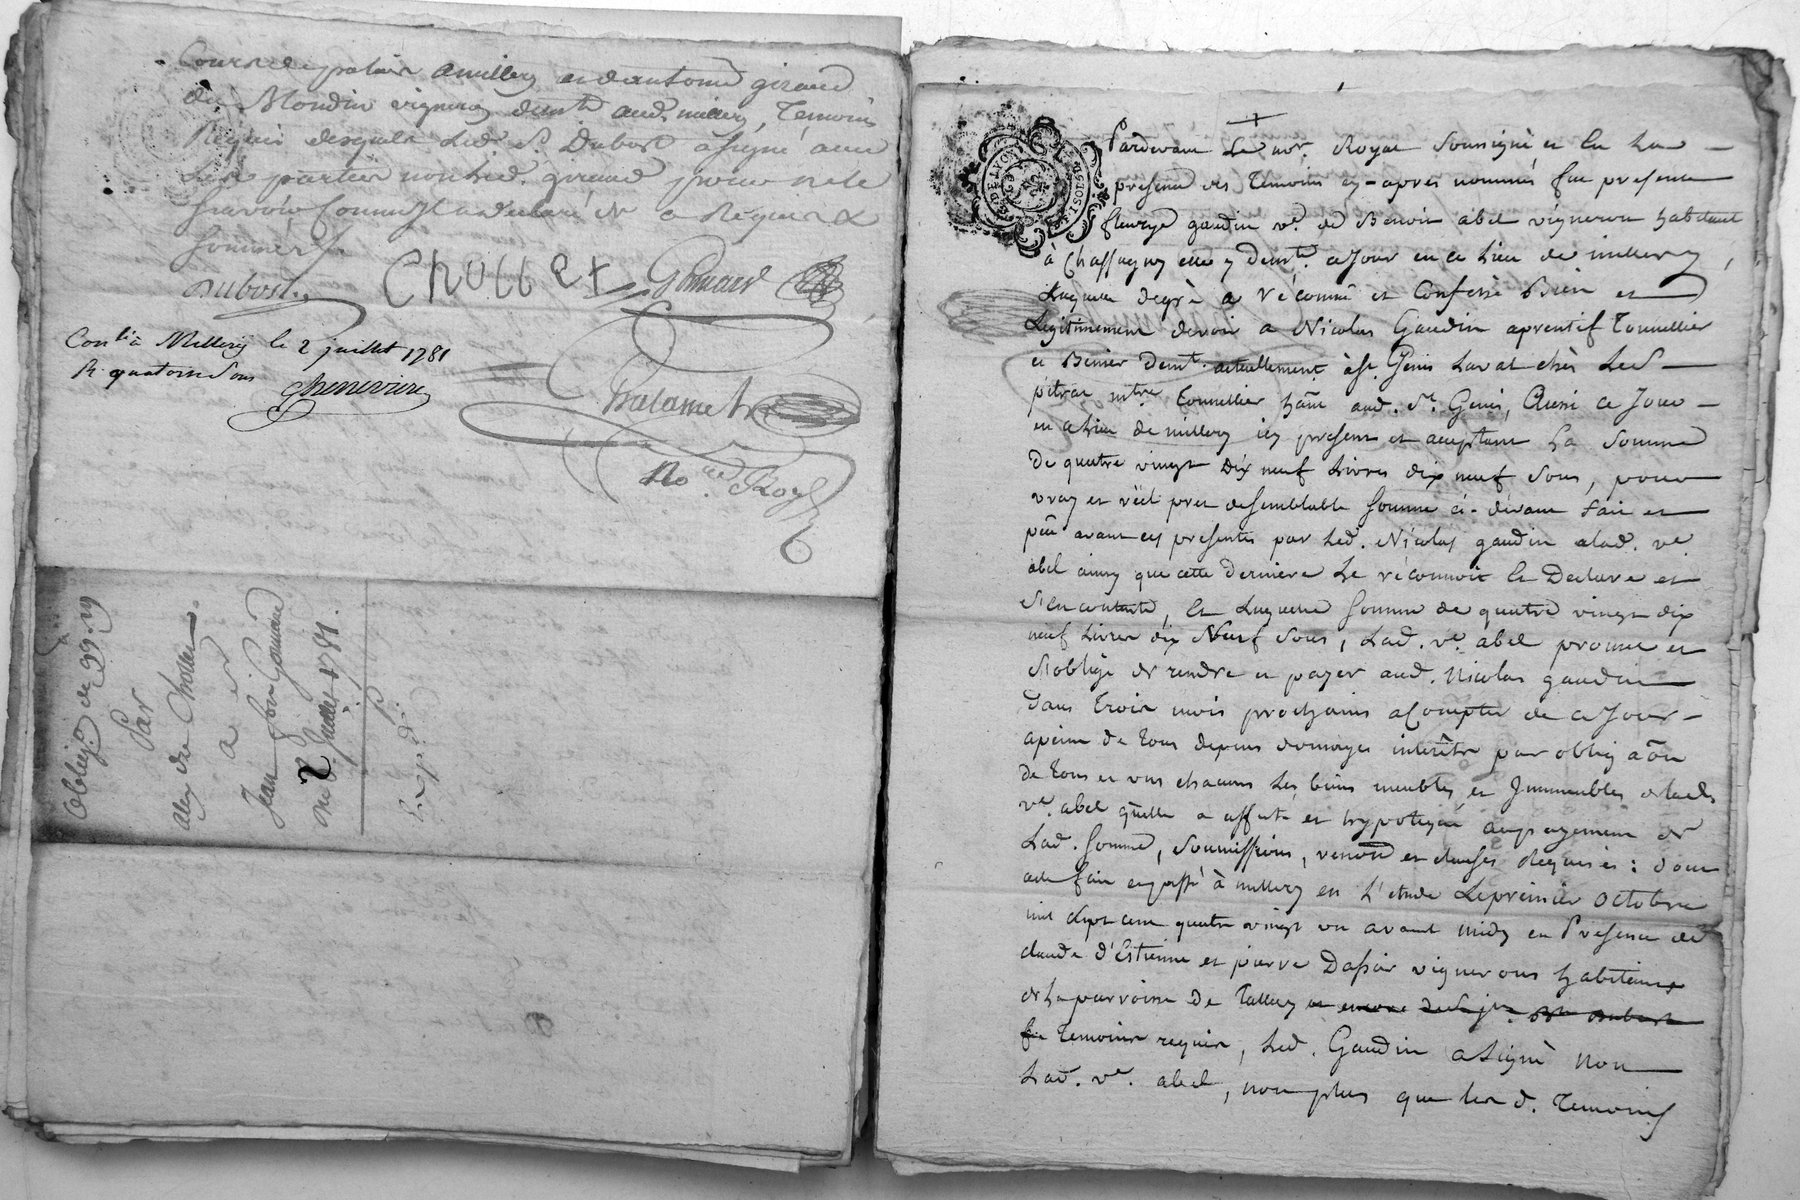 amillery et dantoine giraud
du Mondin vigneron demt aud. millery, Temoins
Requis desquels Led Sr Dubost a signé avec
Les parties non Led. giraud pour ne le
Sçavoir Comme Il a declaré De ce Requis &
Sommés
Dubost
CHOLLET
Gonnard
Contlé à Millery le 2 juillet 1781
R. quatorze Sous
Chenevière
Thalamet
Nore Royl
Oblign de 99.19
Par
aley de Chollet
a
Jean Gonnard
du 2 Juillet 1781.
Expédié
G. DE LYON
Pardevant Le nore Royal Soussigné et En La
presence des Temoins cy-apres nommés fut presente
fleurye gaudin ve de Benoir abel vigneron habitant
à Chassagny elle y demte ce Jour en ce Lieu de millery,
Laquelle degrè a réconnû et Confessé Bien et
Legitimement devoir a Nicolas Gaudin aprentif Tonnellier
et Benier demt actuellement à St Genis Laval chès Led
pitrat mtre Tonnellier hant aud. St Genis, Aussi ce Jour
en ce Lieu de millery icy present et acceptant La Somme
De quatre vingt Dix neuf Livres dix neuf Sous, pour
vray et réél pret desemblable Somme ci-dévant fait et
avant ces presentes par Led. Nicolas gaudin alad. ve
abel ainsy que cette derniere Le réconnoit Et Declare et
S'en contente, Et Laquelle Somme de quatre vingt dix
neuf Livres dix Neuf Sous, Lad. ve abel promet et
S'oblige de rendre et payer aud. Nicolas gaudin
Dans trois mois prochains a Compter de ce Jour
apeine de tous depens domages interêts par oblign
De tous et uns chacuns Les biens meubles et Immeubles delad.
ve abel qu'elle a affecté et hypotequé aupayement de
Lad. Somme, Soumissions, renon et clauses Requises: Dont
acte fait et passé à millery en L'etude Le premier octobre
mil Sept cent quatre vingt un avant midy en Presence de
claude d'Estienne et pierre Dassir vignerons habitants
de La parroisse De Talluy
Temoins requis, Led. Gaudin a Signé non
Lad. ve. abel, non plus que Les d. Temoins